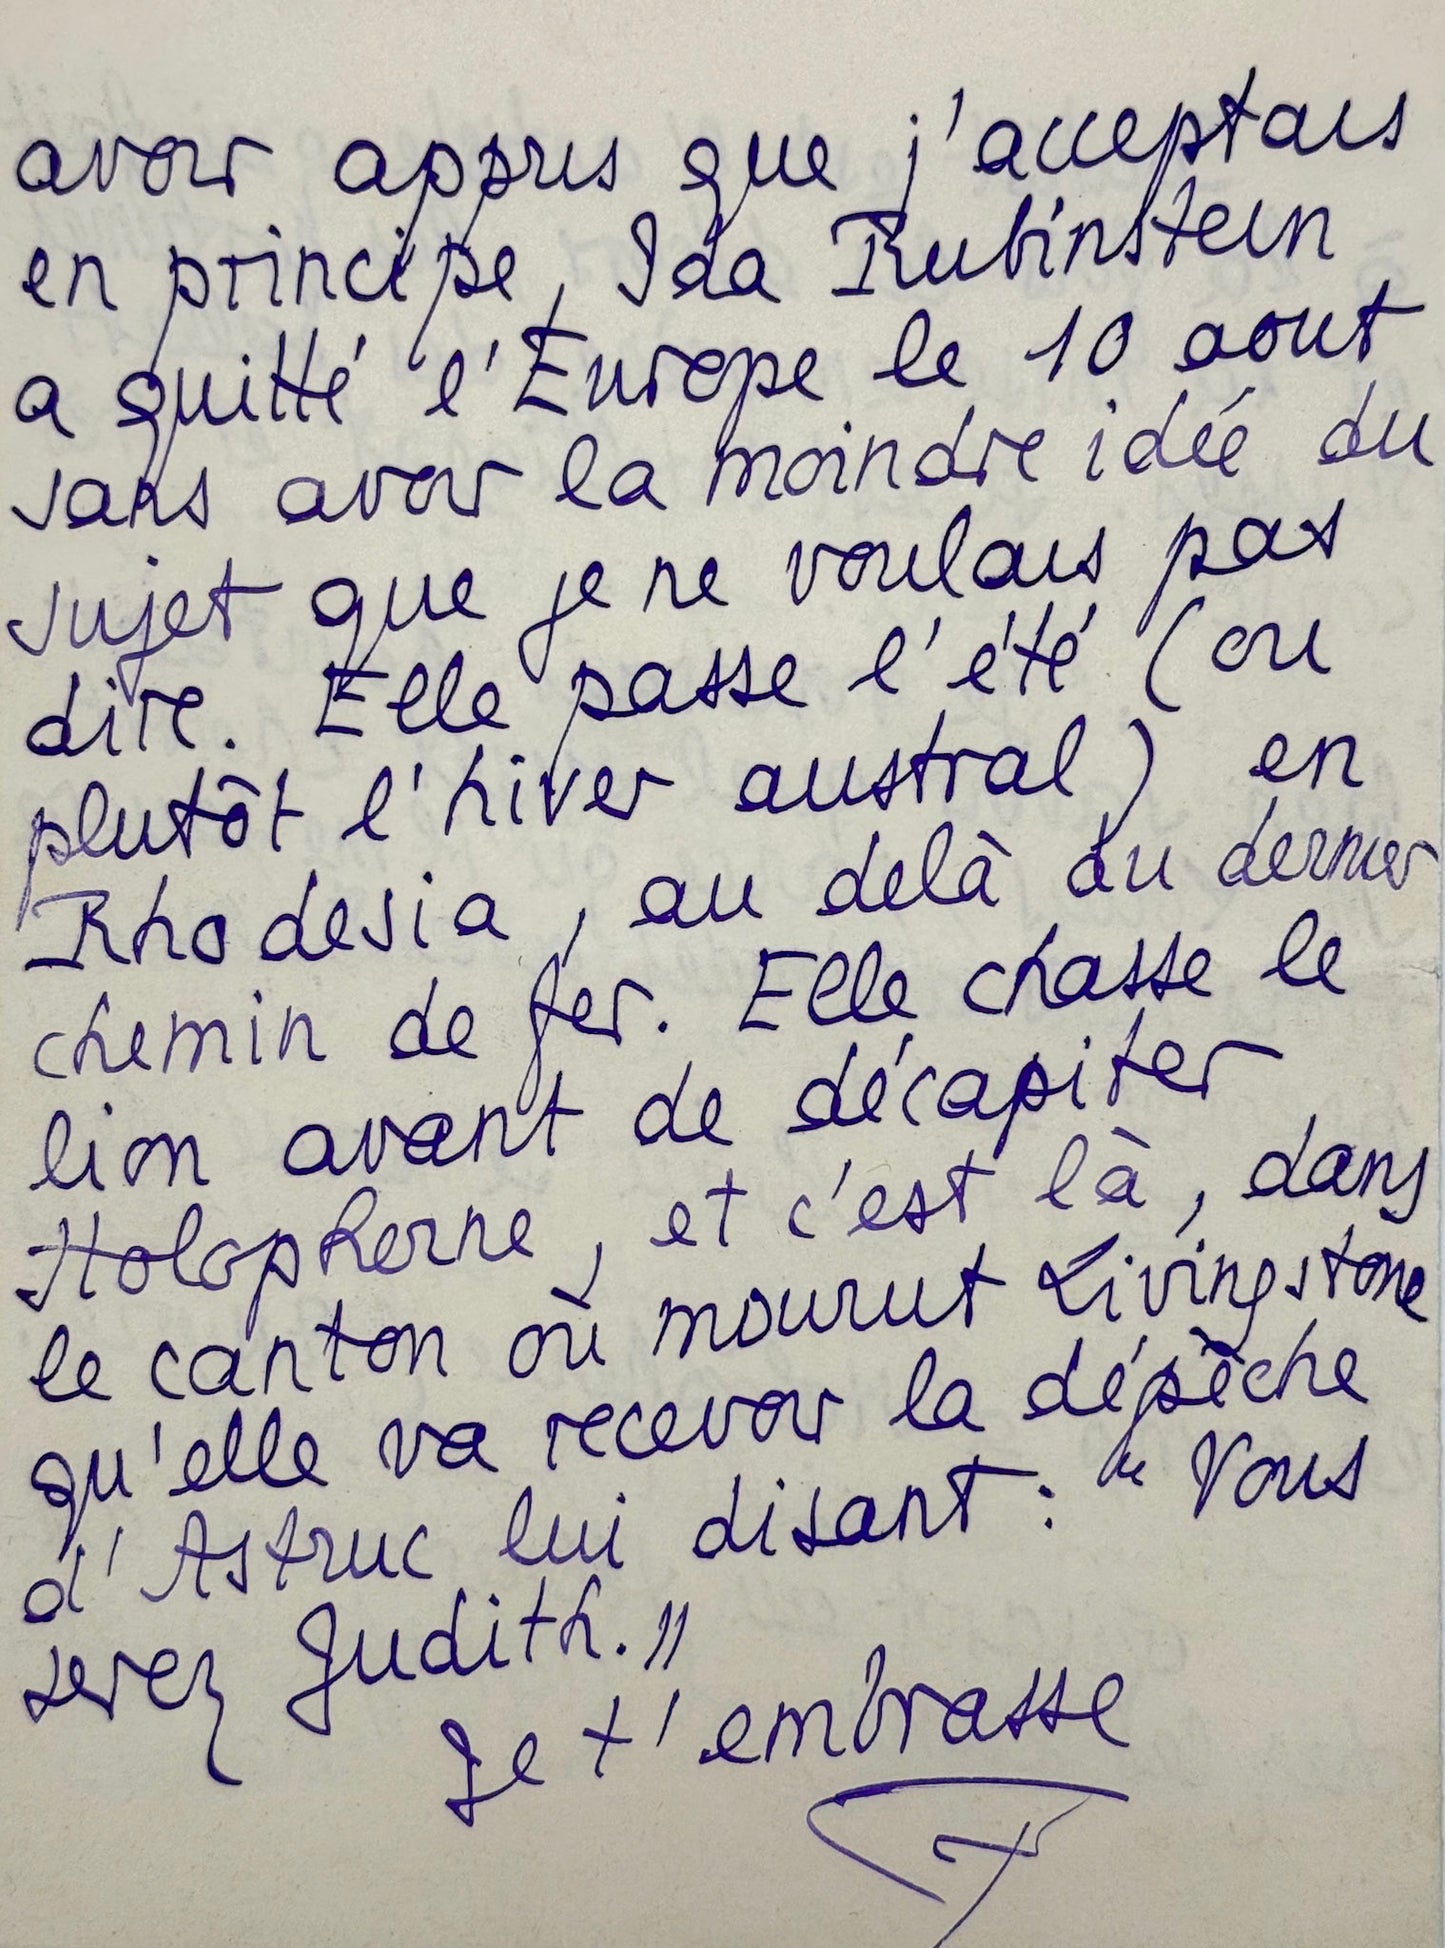 avoir appris que j'acceptais
en principe, Ida Rubinstein
a quitté l'Europe le 10 aout
sans avoir la moindre idée du
sujet que je ne voulais pas
dire. Elle passe l'été (ou
plutôt l'hiver austral) en
Rhodesia, au delà du dernier
chemin de fer. Elle chasse le
lion avant de décapiter
Holopherne, et c'est là, dans
le canton où mourut Livingstone
qu'elle va recevoir la dépèche
d'Astruc lui disant : " Vous
serez Judith."
Je t'embrasse